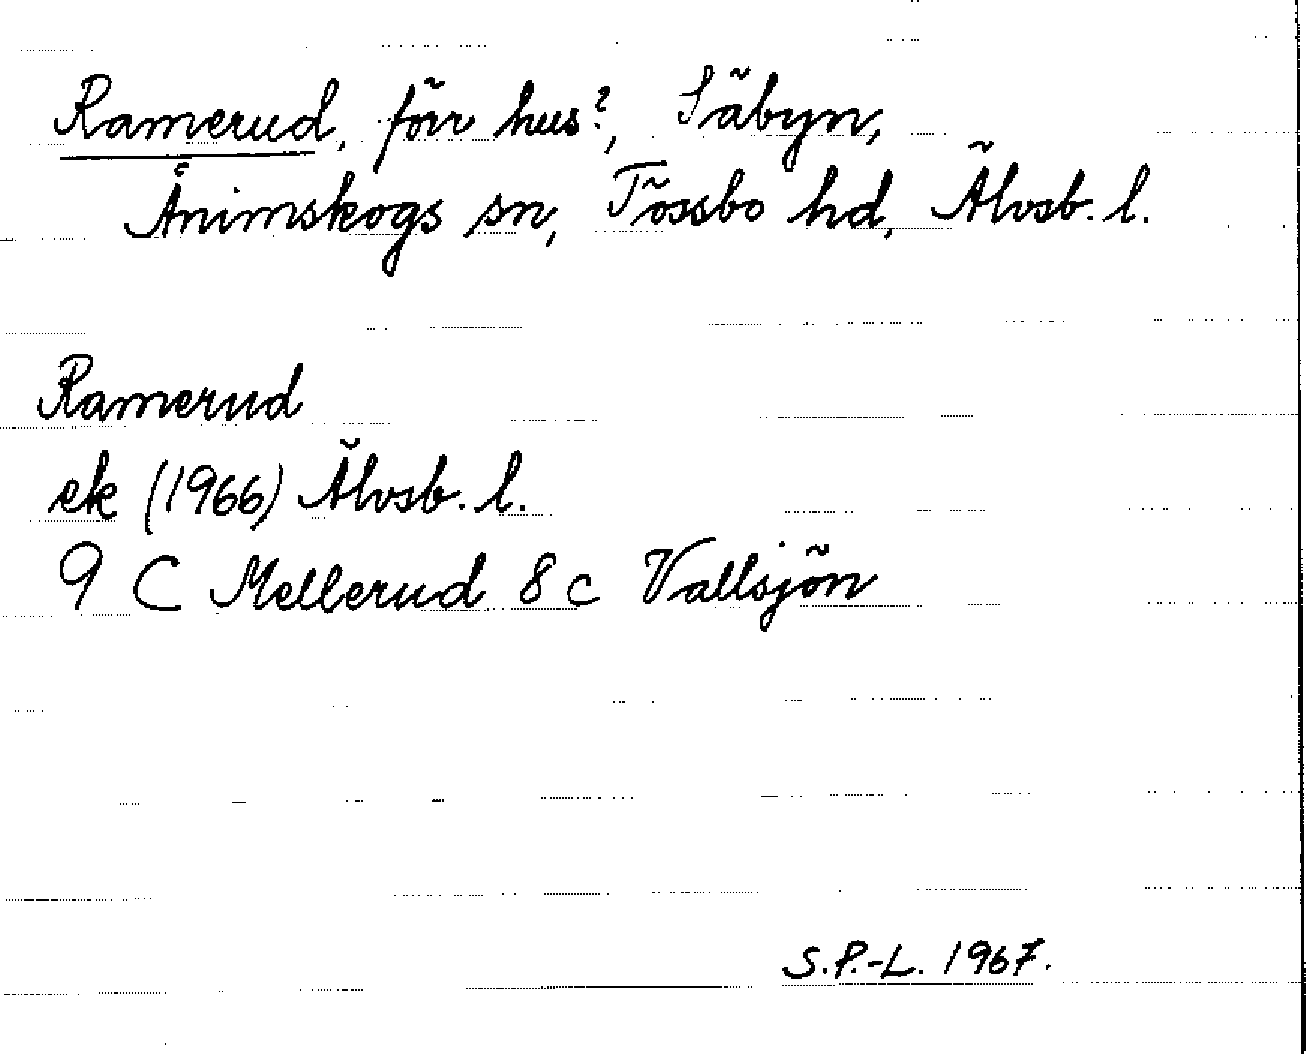 Ramerud, förr hus?, Säbyn,
Ånimskogs sn, Tössbo hd, Älvsb. l.
Ramerud
ek (1966) Älvsb. l.
9 C Mellerud 8 c Vallsjön
S.P.-L. 1967.